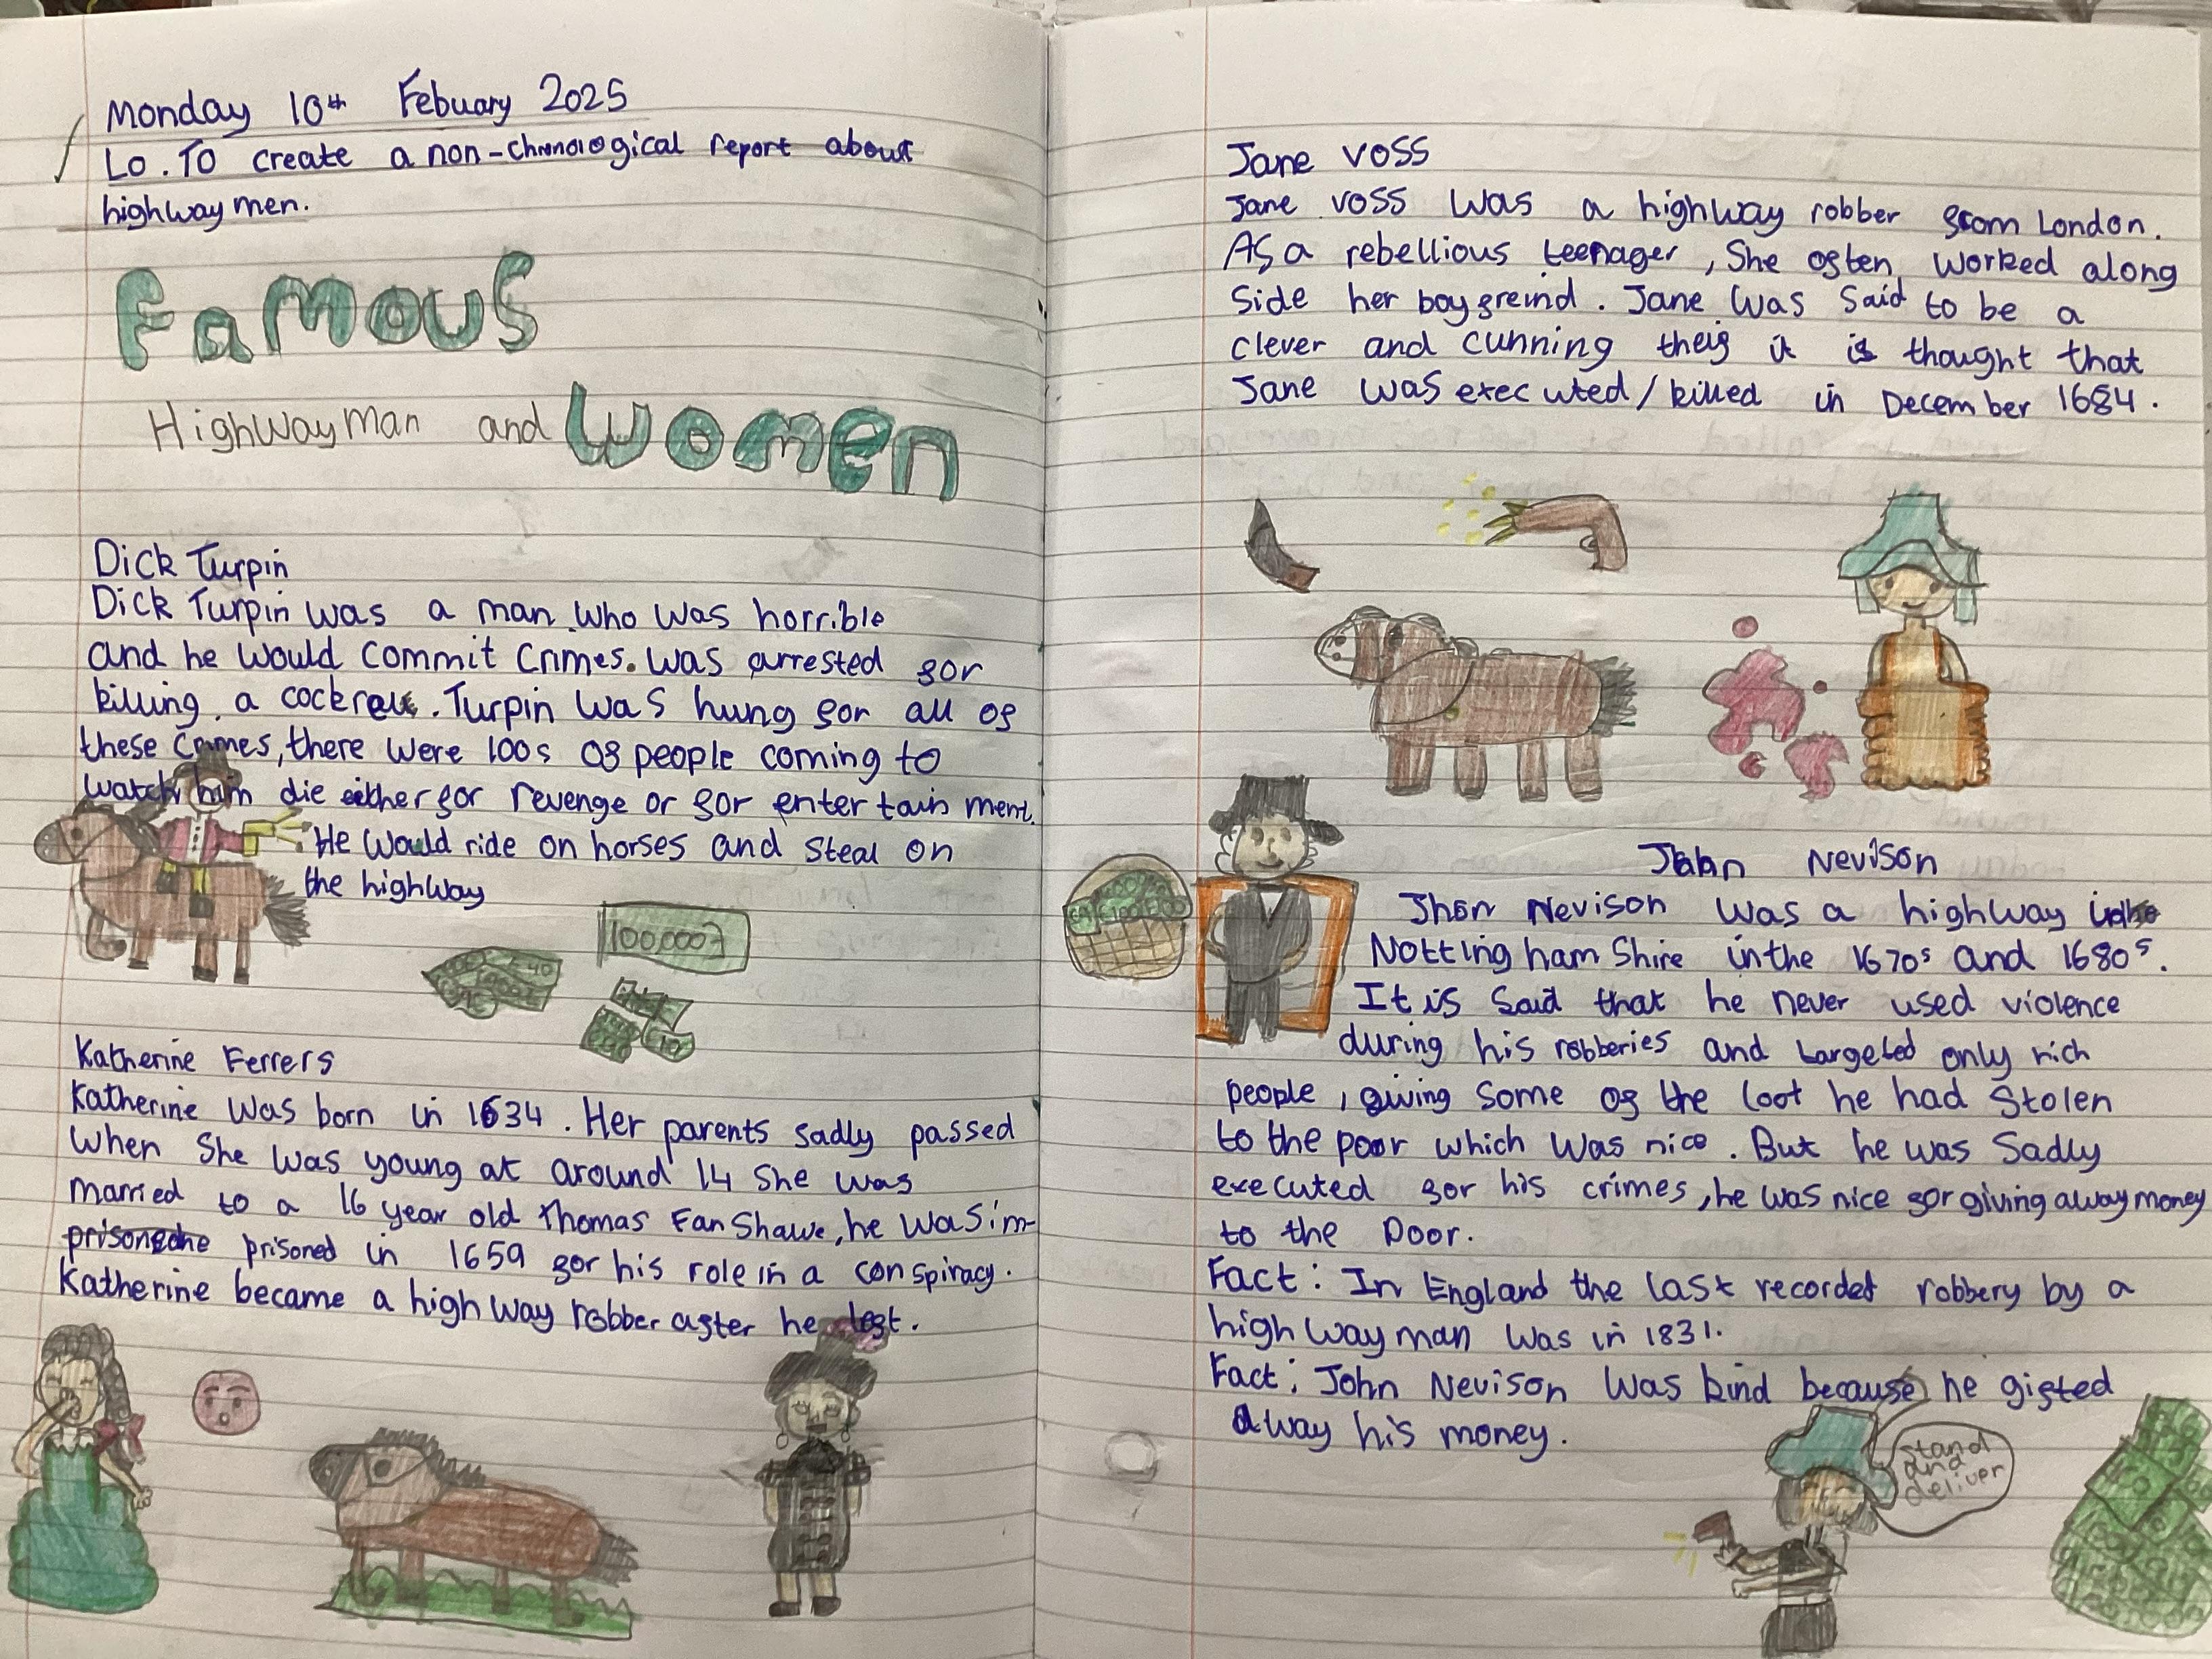 Monday 10th Febuary 2025
Lo. To create a non-chronological report about
highwaymen.
Famous
Highwayman and women
Dick Turpin
Dick Turpin was a man who was horrible
and he would commit crimes. was arrested for
killing a cockrell. Turpin was hung for all of
these crimes, there were 100s of people coming to
watch him die either for revenge or for enter tain ment.
He would ride on horses and steal on
the highway
100,000
Katherine Ferrers
Katherine was born in 1634. Her parents sadly passed
when she was young at around 14 she was
married to a 16 year old Thomas FanShawe, he was im-
prisoned in 1659 for his role in a conspiracy.
Katherine became a high way robber after he
Jane voss
Jane voss was a highway robber from London.
As a rebellious teenager, She often worked along
side her boyfreind. Jane was said to be a
clever and cunning theif it is thought that
Jane was executed/killed in December 1684.
Nevison
Jhon Nevison was a highway
Notting ham Shire in the 1670s and 1680s.
It is said that he never used violence
during his robberies and targeted only rich
people, giving some of the loot he had stolen
to the poor which was nice. But he was sadly
executed for his crimes, he was nice for giving away money
to the poor.
Fact: In England the last recordet robbery by a
high way man was in 1831.
Fact: John Nevison was kind because he gifted
away his money.
stand
and
deliver